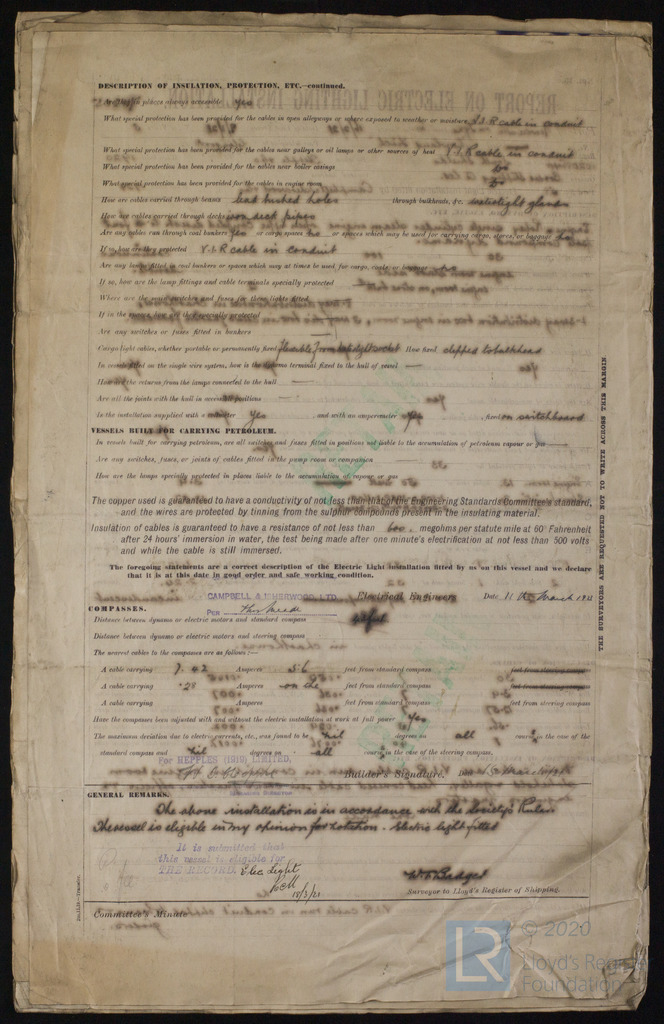 DESCRIPTION OF INSULATION, PROTECTION, ETC.—continued.
Are they in places always accessible yes
What special protection has been provided for the cables in open alleyways or where exposed to weather or moisture V.I.R cable in conduit
What special protection has been provided for the cables near galleys or oil lamps or other sources of heat V.I.R cable in conduit
What special protection has been provided for the cables near boiler casings do
What special protection has been provided for the cables in engine room do
How are cables carried through beams lead bushed holes through bulkheads, &c. watertight glands
How are cables carried through decks iron deck pipes
Are any cables run through coal bunkers yes or cargo spaces no or spaces which may be used for carrying cargo, stores, or baggage no
If so, how are they protected V.I.R cable in conduit
Are any lamps fitted in coal bunkers or spaces which may at times be used for cargo, coals, or baggage no
If so, how are the lamp fittings and cable terminals specially protected
Where are the main switches and fuses for these lights fitted
If in the spaces, how are they specially protected
Are any switches or fuses fitted in bunkers
Cargo light cables, whether portable or permanently fixed flexible from watertight socket How fixed clipped to bulkhead
In vessels fitted on the single wire system, how is the dynamo terminal fixed to the hull of vessel
How are the returns from the lamps connected to the hull
Are all the joints with the hull in accessible positions
Is the installation supplied with a voltmeter yes and with an amperemeter yes, fixed on switchboard
VESSELS BUILT FOR CARRYING PETROLEUM.
In vessels built for carrying petroleum, are all switches and fuses fitted in positions not liable to the accumulation of petroleum vapour or gas
Are any switches, fuses, or joints of cables fitted in the pump room or companion
How are the lamps specially protected in places liable to the accumulation of vapour or gas
The copper used is guaranteed to have a conductivity of not less than that of the Engineering Standards Committee's standard,
and the wires are protected by tinning from the sulphur compounds present in the insulating material.
Insulation of cables is guaranteed to have a resistance of not less than 600 megohms per statute mile at 60° Fahrenheit
after 24 hours' immersion in water, the test being made after one minute's electrification at not less than 500 volts
and while the cable is still immersed.
The foregoing statements are a correct description of the Electric Light installation fitted by us on this vessel and we declare
that it is at this date in good order and safe working condition.
CAMPBELL & ISHERWOOD, LTD. Electrical Engineers Date 11th March 1921
PER
COMPASSES.
Distance between dynamo or electric motors and standard compass
Distance between dynamo or electric motors and steering compass
The nearest cables to the compasses are as follows:—
A cable carrying 7.42 Amperes 56 feet from standard compass feet from steering compass
A cable carrying .28 Amperes on the feet from standard compass feet from steering compass
A cable carrying Amperes feet from standard compass feet from steering compass
Have the compasses been adjusted with and without the electric installation at work at full power Yes
The maximum deviation due to electric currents, etc., was found to be Nil degrees on all course in the case of the
standard compass and Nil degrees on all course in the case of the steering compass.
For HEPPLES (1919) LIMITED,
Builder's Signature. Date
GENERAL REMARKS.
The above installation is in accordance with the Society's Rules.
The vessel is eligible in my opinion for notation. Electric light fitted
It is submitted that
this vessel is eligible for
THE RECORD. Elec Light
18/3/21
Surveyor to Lloyd's Register of Shipping.
Committee's Minute
THE SURVEYORS ARE REQUESTED NOT TO WRITE ACROSS THIS MARGIN
LR © 2020
Lloyd's Register
Foundation